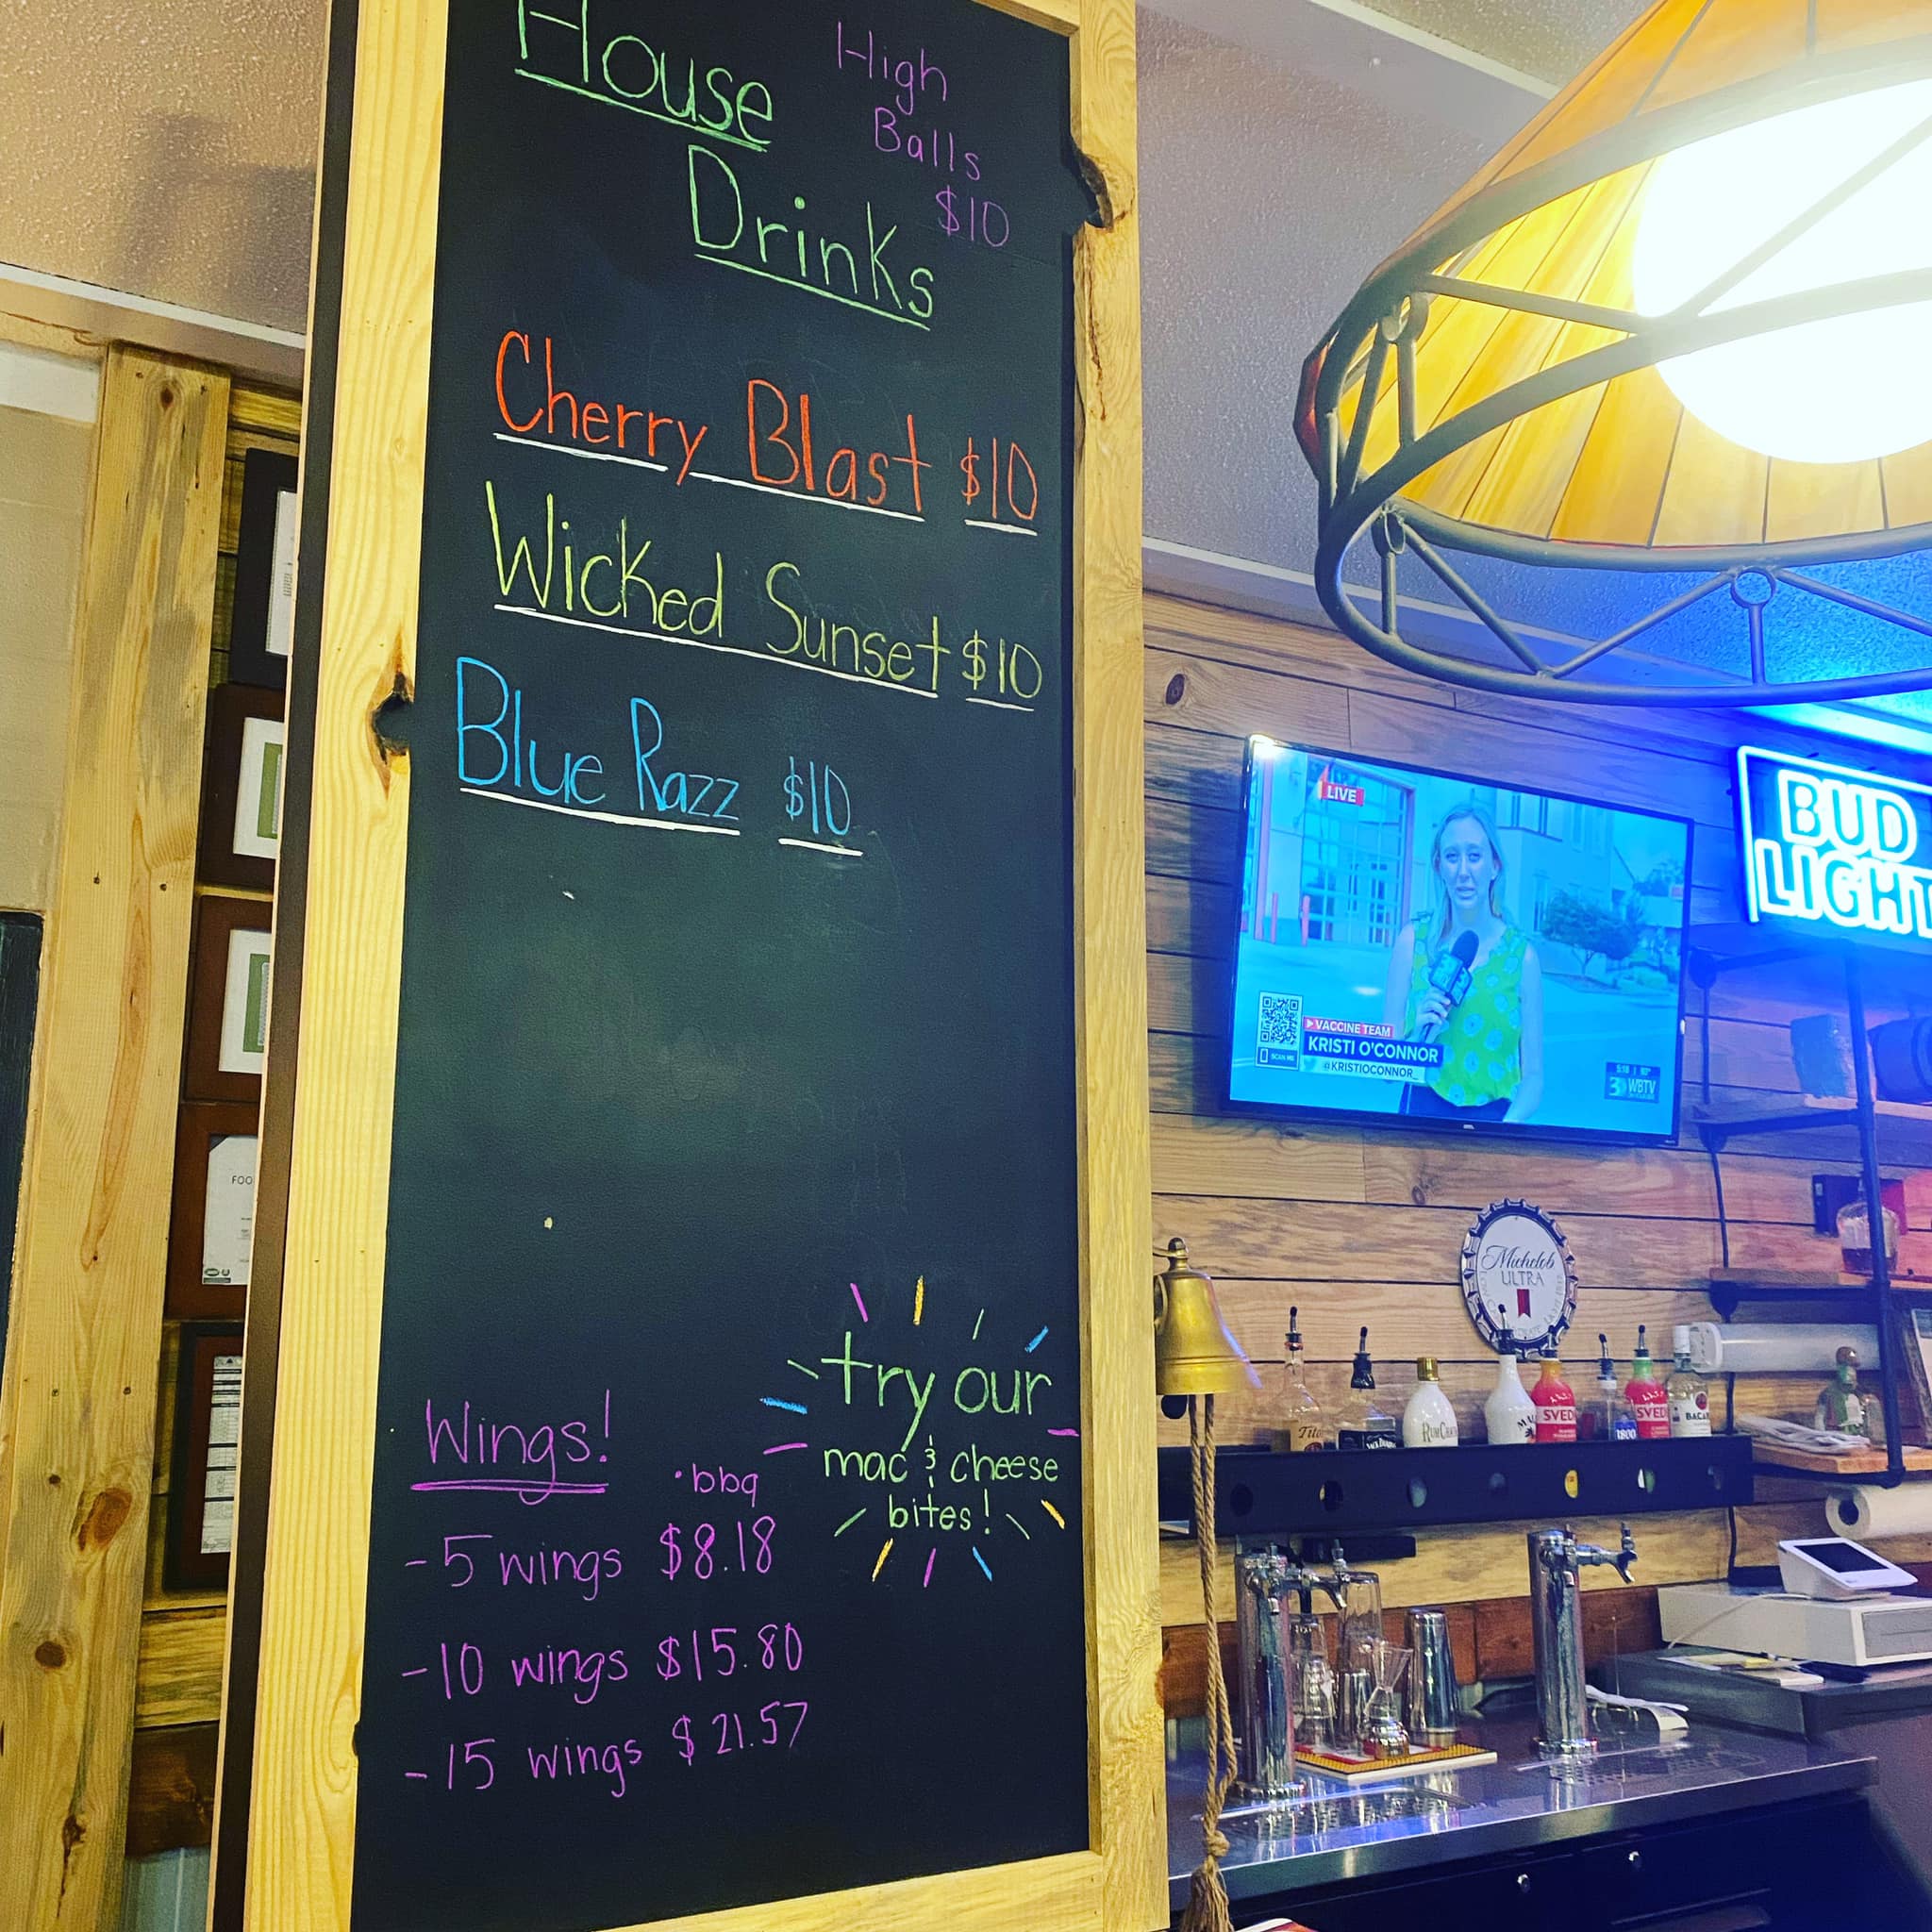 House
Drinks
High
Balls
$10
Cherry Blast $10
Wicked Sunset $10
Blue Razz $10
Wings!
•bbq
-5 wings $8.18
-10 wings $15.80
-15 wings $21.57
try our
mac & cheese
bites!
LIVE
VACCINE TEAM
KRISTI O'CONNOR
@KRISTIOCONNOR_
SCAN ME
5:18 | 90°
3 WBTV
BUD
LIGHT
Michelob
ULTRA
SVED
SVED
1800
BACA
FOO